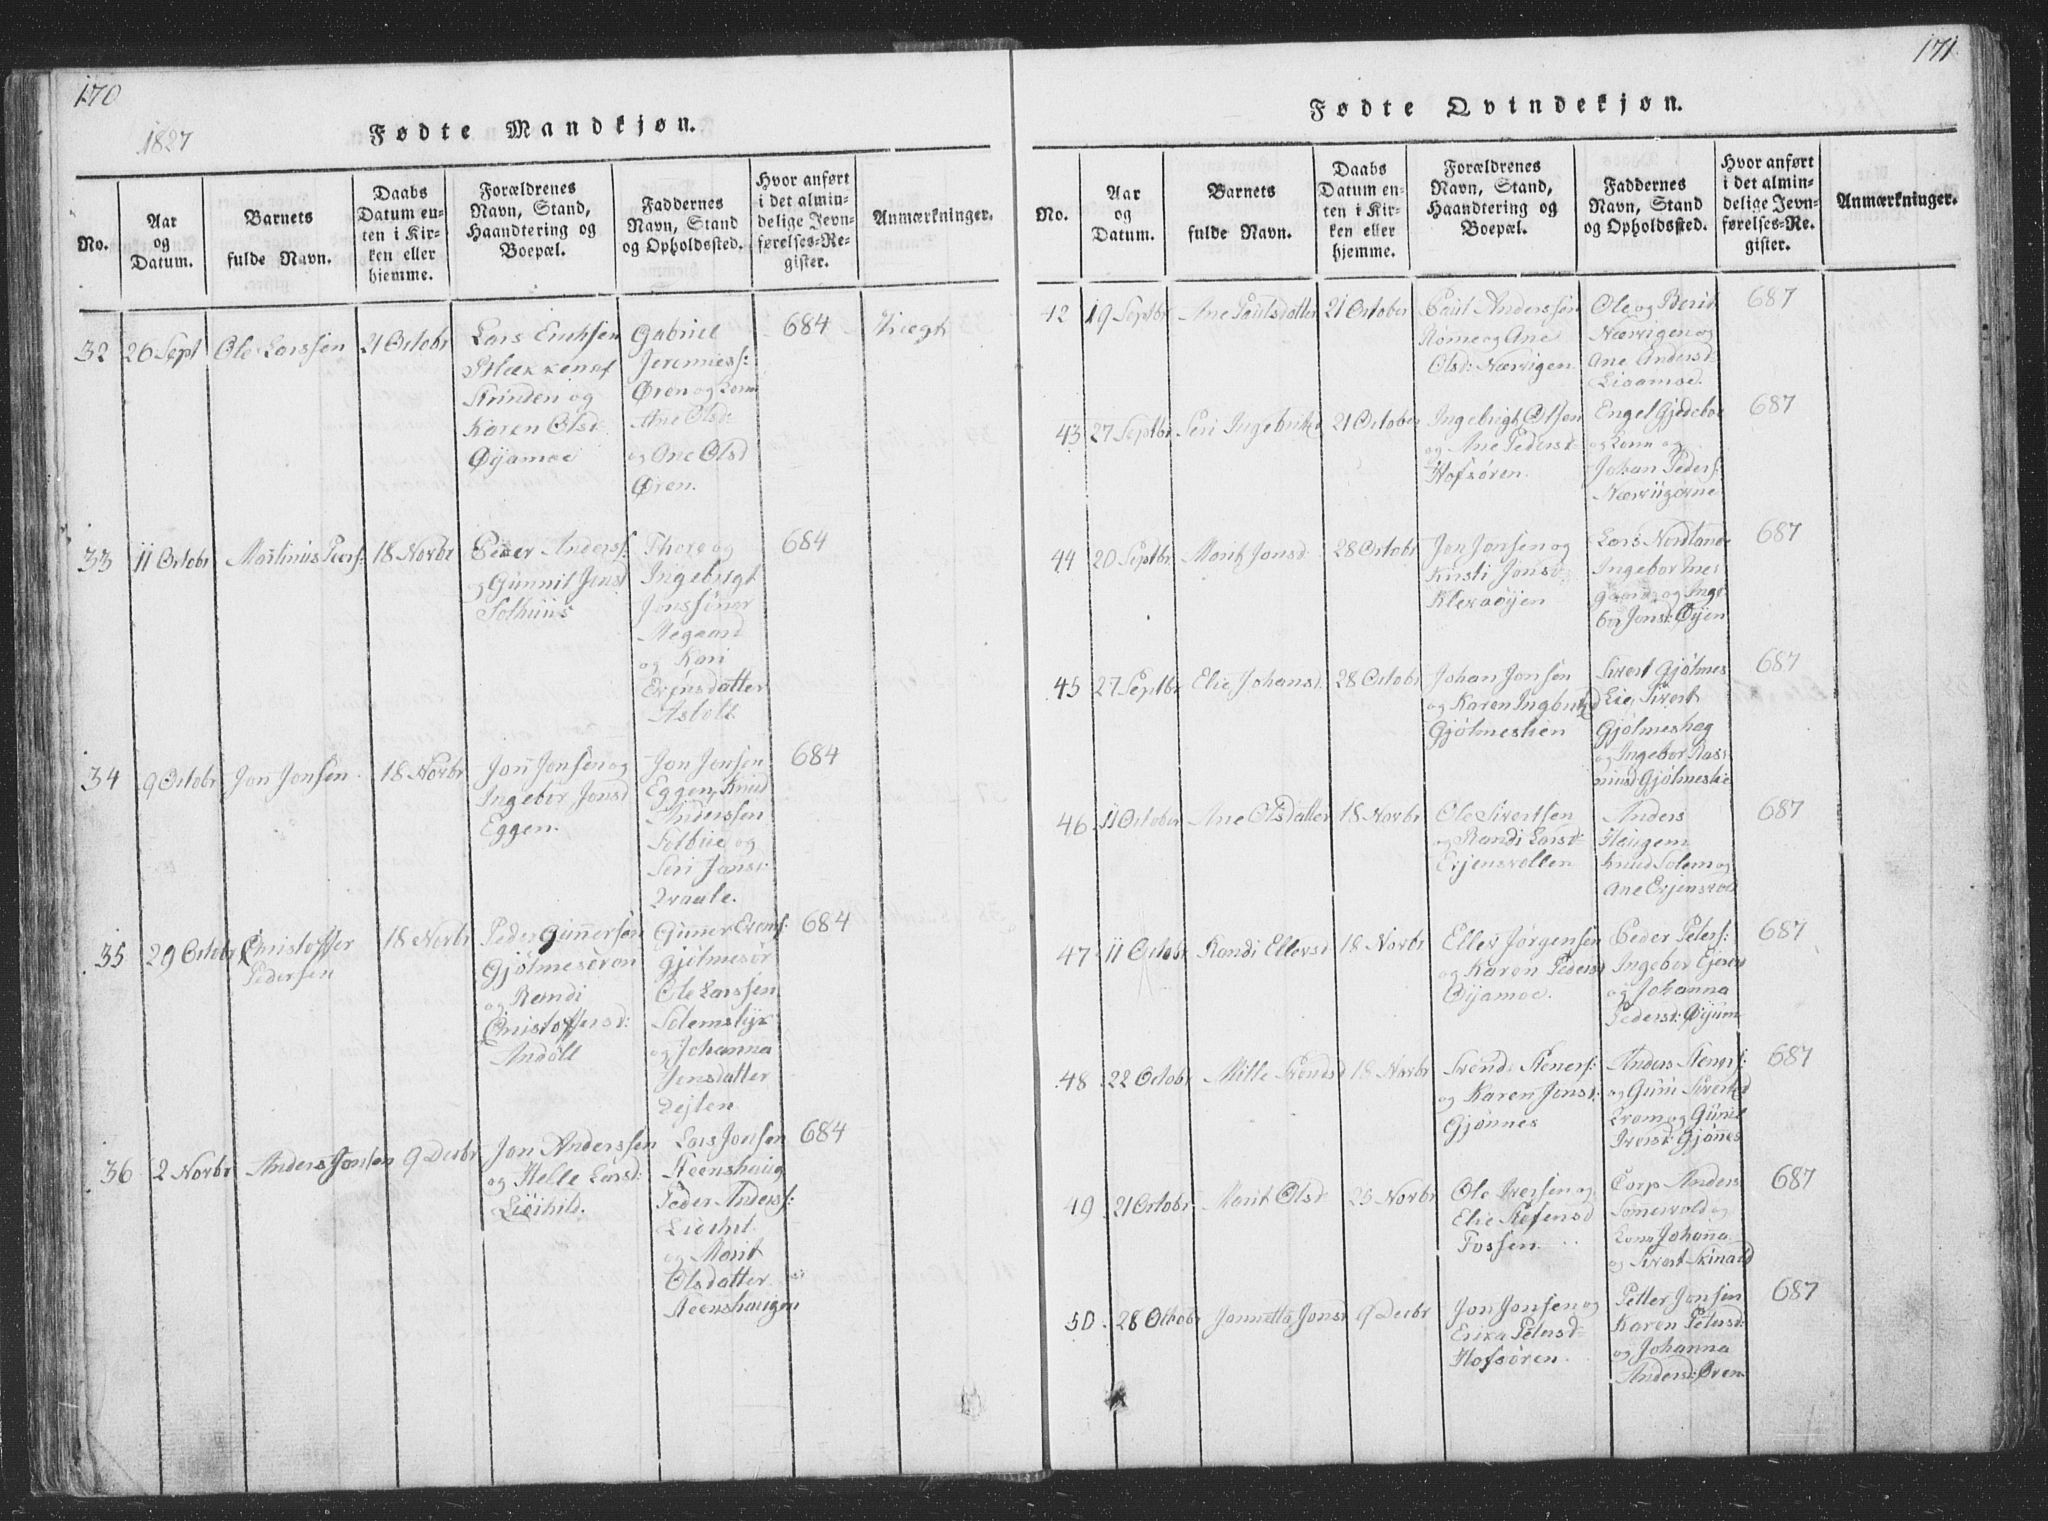 170
1827
Fødte Mandkjøn.
No.
Aar
og
Datum.
Barnets
fulde Navn.
Daabs
Datum en-
ten i Kir-
ken eller
hjemme.
Forældrenes
Navn, Stand,
Haandtering og
Boepæl.
Faddernes
Navn, Stand
og Opholdssted.
Hvor anført
i det almin-
delige Jevn-
førelses-Re-
gister.
Anmærkninger.
32 26 Sept Ole Larssen 21 Octobr
Lars Erichsen
Strinden og
Karen Olsd:
Øyamoe
Gabriel
Jeremiess:
Øren og Kone
Ane Olsd:
og Ane Olsd
Øren.
684
33 11 Octobr Martinus Peers: 18 Novbr
Peder Anderss:
og Gunnil Jonsd
Solhuus
Thore og
Ingebrigt
Jonssöner
Megaard
og Kari
684
34 9 Octobr Jon Jonsen 18 Novbr
Jon Jonsen og
Ingebor Jonsd
Eggen.
Jon Jonsen
Eggen, Knud
Anderssen
Solbue og
Seri Jonsd:
684
35 29 Octobr Christoffer
Pedersen
18 Novbr
Peder Gunnersen
Gjølmesøren
og Randi
Christoffersd:
Andøll
Guner Evens:
Gjølmesør
Ole Larssen
og Johanna
Jensdatter
684
36 2 Novbr Anders Jonsen 9 Decbr
Jon Anderssen
og Helle Larsd:
Lars Jonsen
Steenshaug
Peder Anderss:
og Marit
Olsdatter
Steenshaugen
684
171
Fødte Qvindekjøn.
No.
Aar
og
Datum.
Barnets
fulde Navn.
Daabs
Datum en-
ten i Kir-
ken eller
hjemme.
Forældrenes
Navn, Stand,
Haandtering og
Boepæl.
Faddernes
Navn, Stand
og Opholdssted.
Hvor anført
i det almin-
delige Jevn-
førelses-Re-
gister.
Anmærkninger.
42 19 Septbr Ane Paulsdatter 21 October
Paul Anderssen
Rømme og Ane
Olsd: Nærvigen
Ole og Berit
Nærvigen og
Ane Andersd
687
43 27 Septbr Seri Ingebrigtsd 21 October
Ingebrigt Olsen
og Ane Pedersd:
Hofsøren.
Engel Gjedeboe
og Kone og
Johan Peders:
687
44 20 Septbr Marit Jonsd 28 Octobr
Jon Jonsen og
Kirsti Jonsd
Klevaøyen
Lars Nordland
Ingebor
gaard og Inge
bor Jonsd: Øyen
687
45 27 Septbr Elie Johansd: 28 Octobr
Johan Jonsen
og Karen Ingbrigtsd
Gjølmeslien
Sivert Gjølmes
Lie, Sivert
Gjølmeshag
og Ingebor Ras
musd Gjølmeslie
687
46 11 October Ane Olsdatter 18 Novbr
Ole Sivertsen
og Randi Larsd:
Evjensvollen
Anders
Haugen
Knud Solem og
Ane Evjensvol
687
47 11 Octobr Randi Ellevsd 18 Novbr
Ellev Jørgensen
og Karen Pedersd
Øyamoe.
Peder Peters:
Ingebor
og Johanna
Pedersd: Øyum
687
48 22 Octobr Mille Svendsd 18 Novbr
Svend Steners:
og Karen Jonsd:
Gjønnes
Anders Steners:
og Guru Sivertsd
og Gunil
Iversd: Gjønnes
687
49 21 Octobr Marit Olsd: 25 Novbr
Ole Iversen og
Elie Stefensd
Fossen
Corp Anders
Kone Johana
687
50 28 Octobr Jonnetta Jonsd 9 Decbr
Jon Jonsen og
Erika Petersd:
Hofsøren.
Petter Jonsen
Karen Petersd:
og Johanna
Andersd: Øren
687